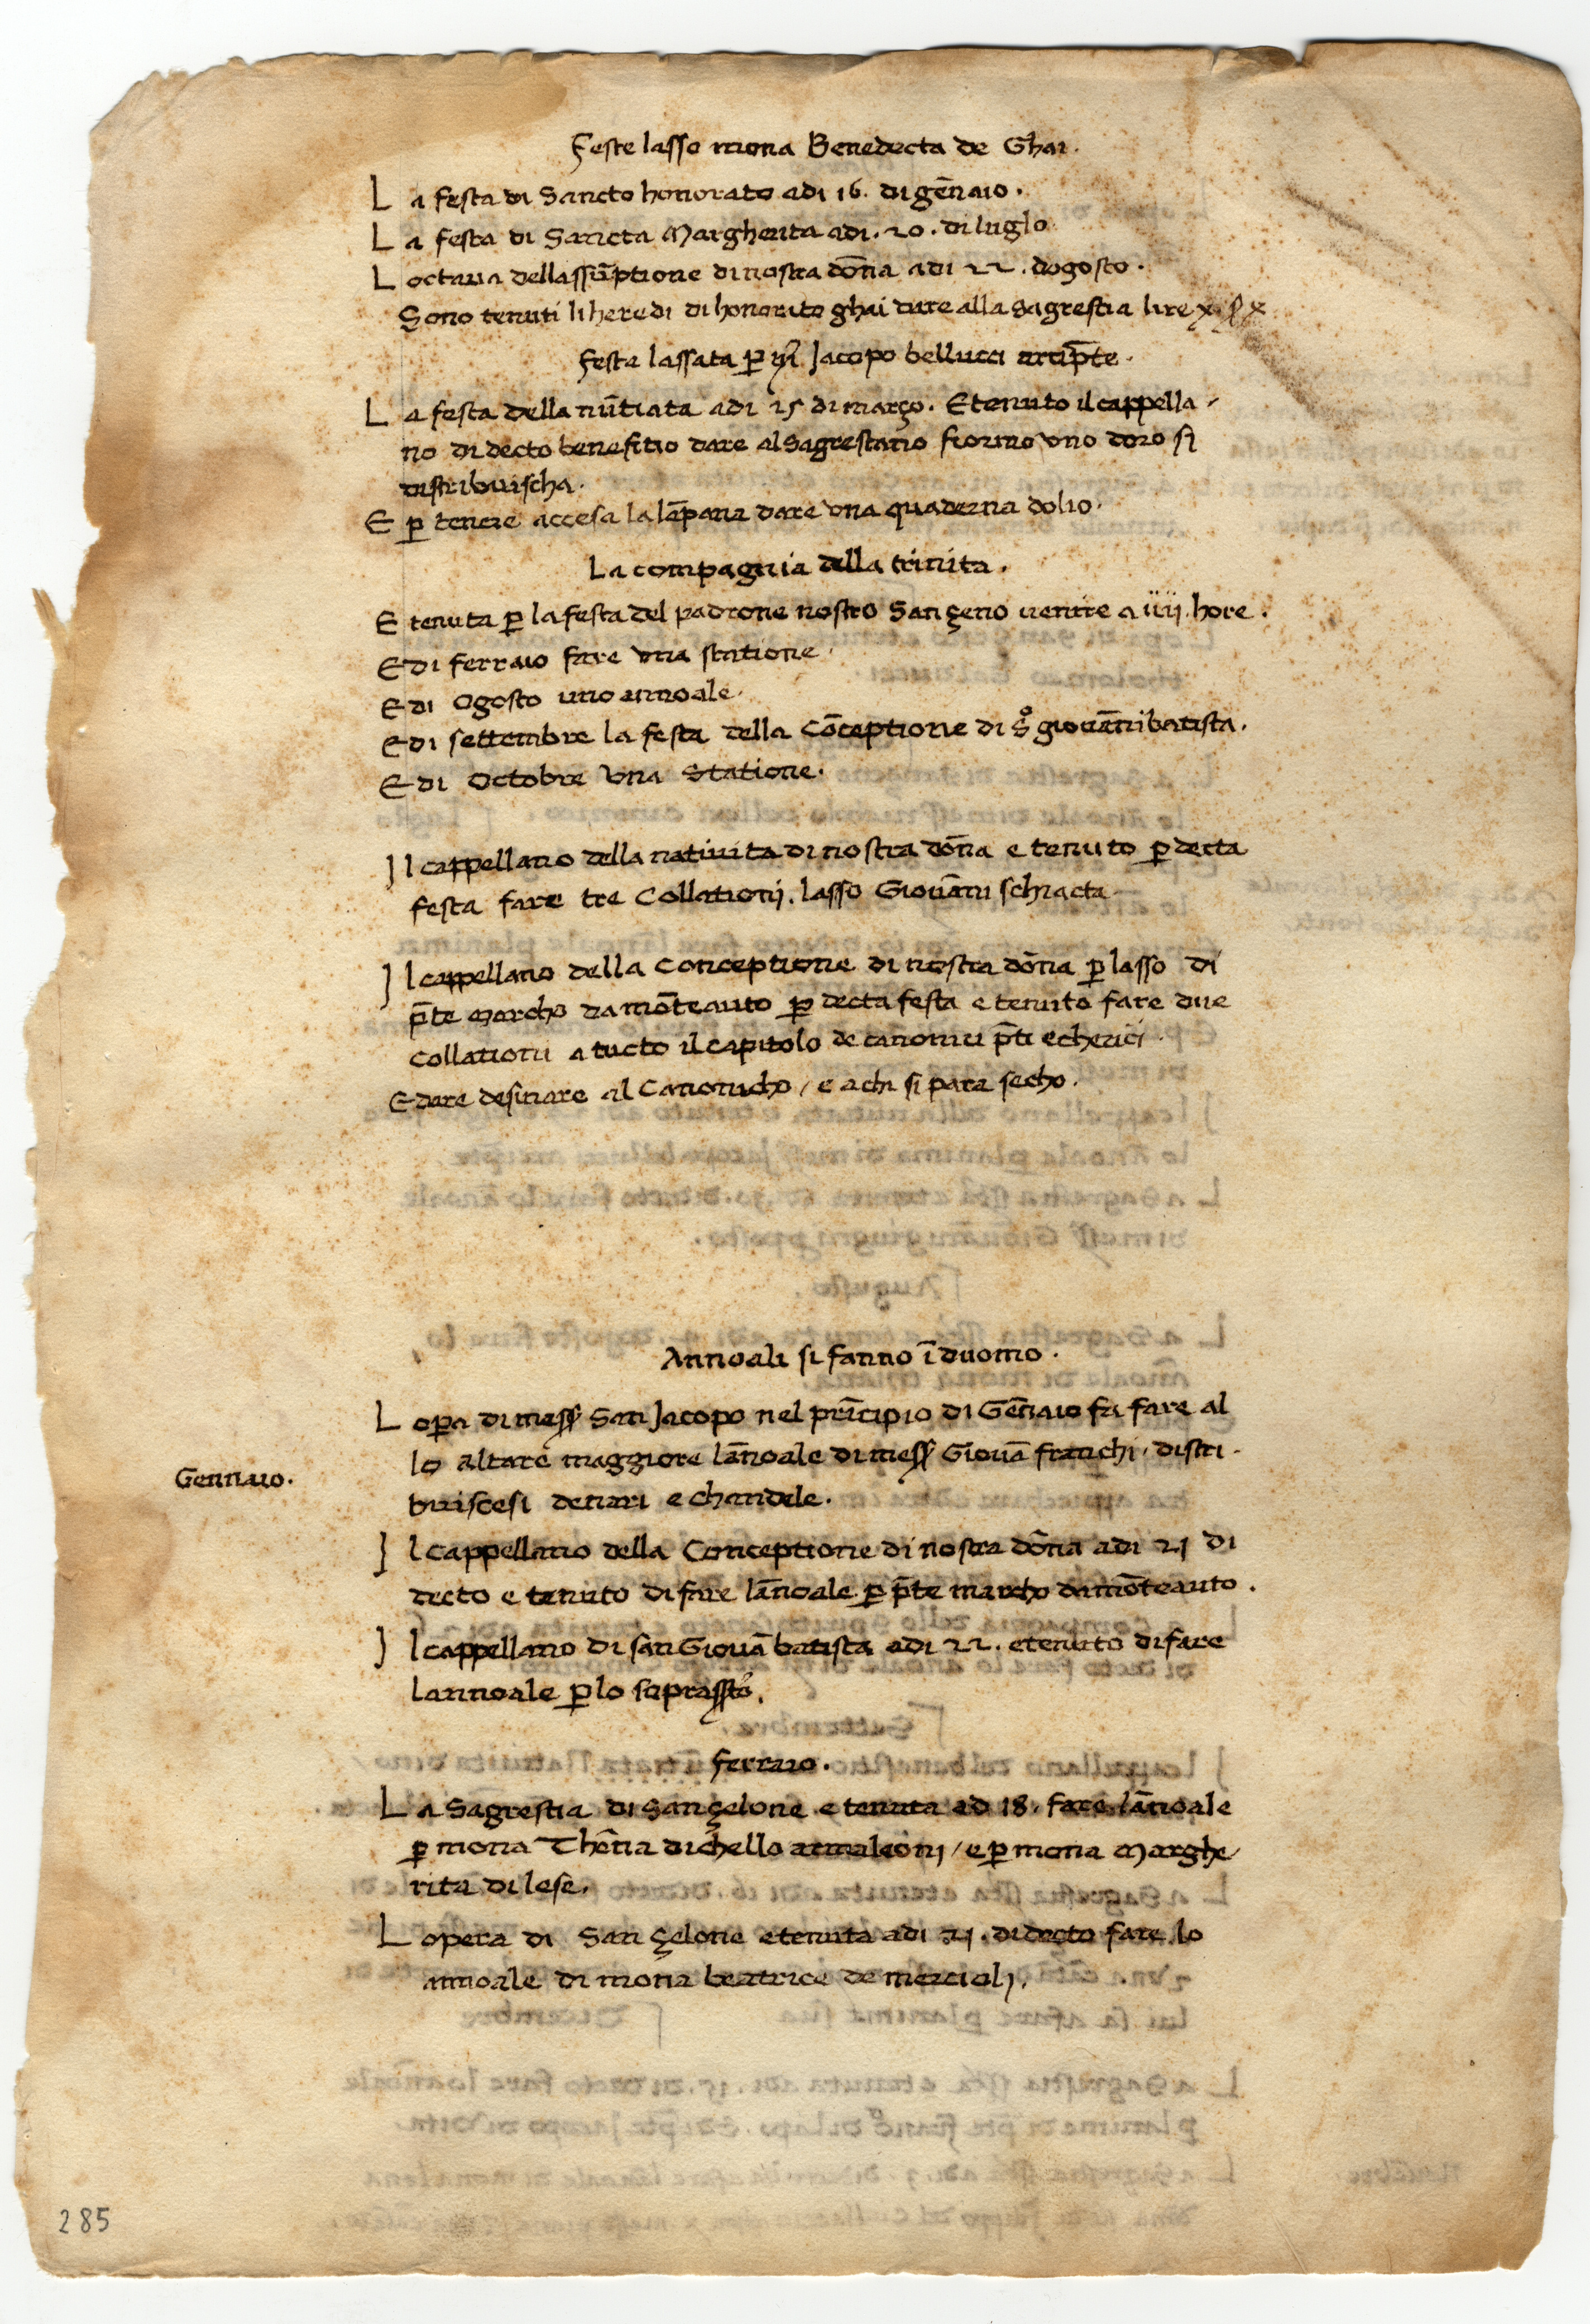 Feste lasso mona Benedecta de Ghai.
La festa di Sancto honorato adi 16. di gēnaio.
La festa di Sancta Margherita adi. 20. di luglo
Loctaua dellassūptione di nostra dōna adi 22. dogosto.
Sono tenuti li heredi di honorito ghai dare alla sagrestia lire x
festa lassata ꝑ Jacopo bellucci
La festa della nūtiata adi 25 di março. E tenuto il cappella
no di decto benefitio dare al sagrestano fiorino vno doro si
distribuischa.
E ꝑ tenere accesa la lāpana dare vna quaderna dolio.
La compagnia della trinita.
E tenuta ꝑ la festa del padrone nostro San çeno uenire a iiij. hore.
E di ferraio fare vna statione.
E di Ogosto uno annoale.
E di settembre la festa della Cōceptione di S.º giouānibatista.
E di Octobre vna statione.
Il cappellano della natiuita di nostra dōna e tenuto ꝑ decta
festa fare tre Collationj. lasso Giouāni schiacta
Il cappellano della Conceptione di nostra dōna ꝑ lasso di
p̄te Marcho da mōteauto ꝑ decta festa e tenuto fare due
Collationi a tucto il capitolo de canonici p̄ti e cherici.
E dare desinare al Canonicho / e a chi si para secho.
Annoali si fanno ī duomo.
Loꝑa di mess̄ San Jacopo nel prīcipio di Gēnaio fa fare al
lo altare maggiore lānoale di mess̄ Giouā franchi. distri
Gennaio.
buiscesi denari e chandele.
Il cappellano della Conceptione di nostra dōna adi 21 di
decto e tenuto di fare lānoale ꝑ p̄te marcho da mōteauto.
Il cappellano di san Giouā batista adi 22. e tenuto di fare
lannoale ꝑ lo soprassto.
ferraio.
La Sagrestia di San çelone e tenuta ad 18. fare lānoale
ꝑ mona Thēna di chello / e ꝑ mona Marghe/
rita di lese.
Lopera di San çelone e tenuta adi 21. di decto fare lo
annoale di mona beatrice de
285